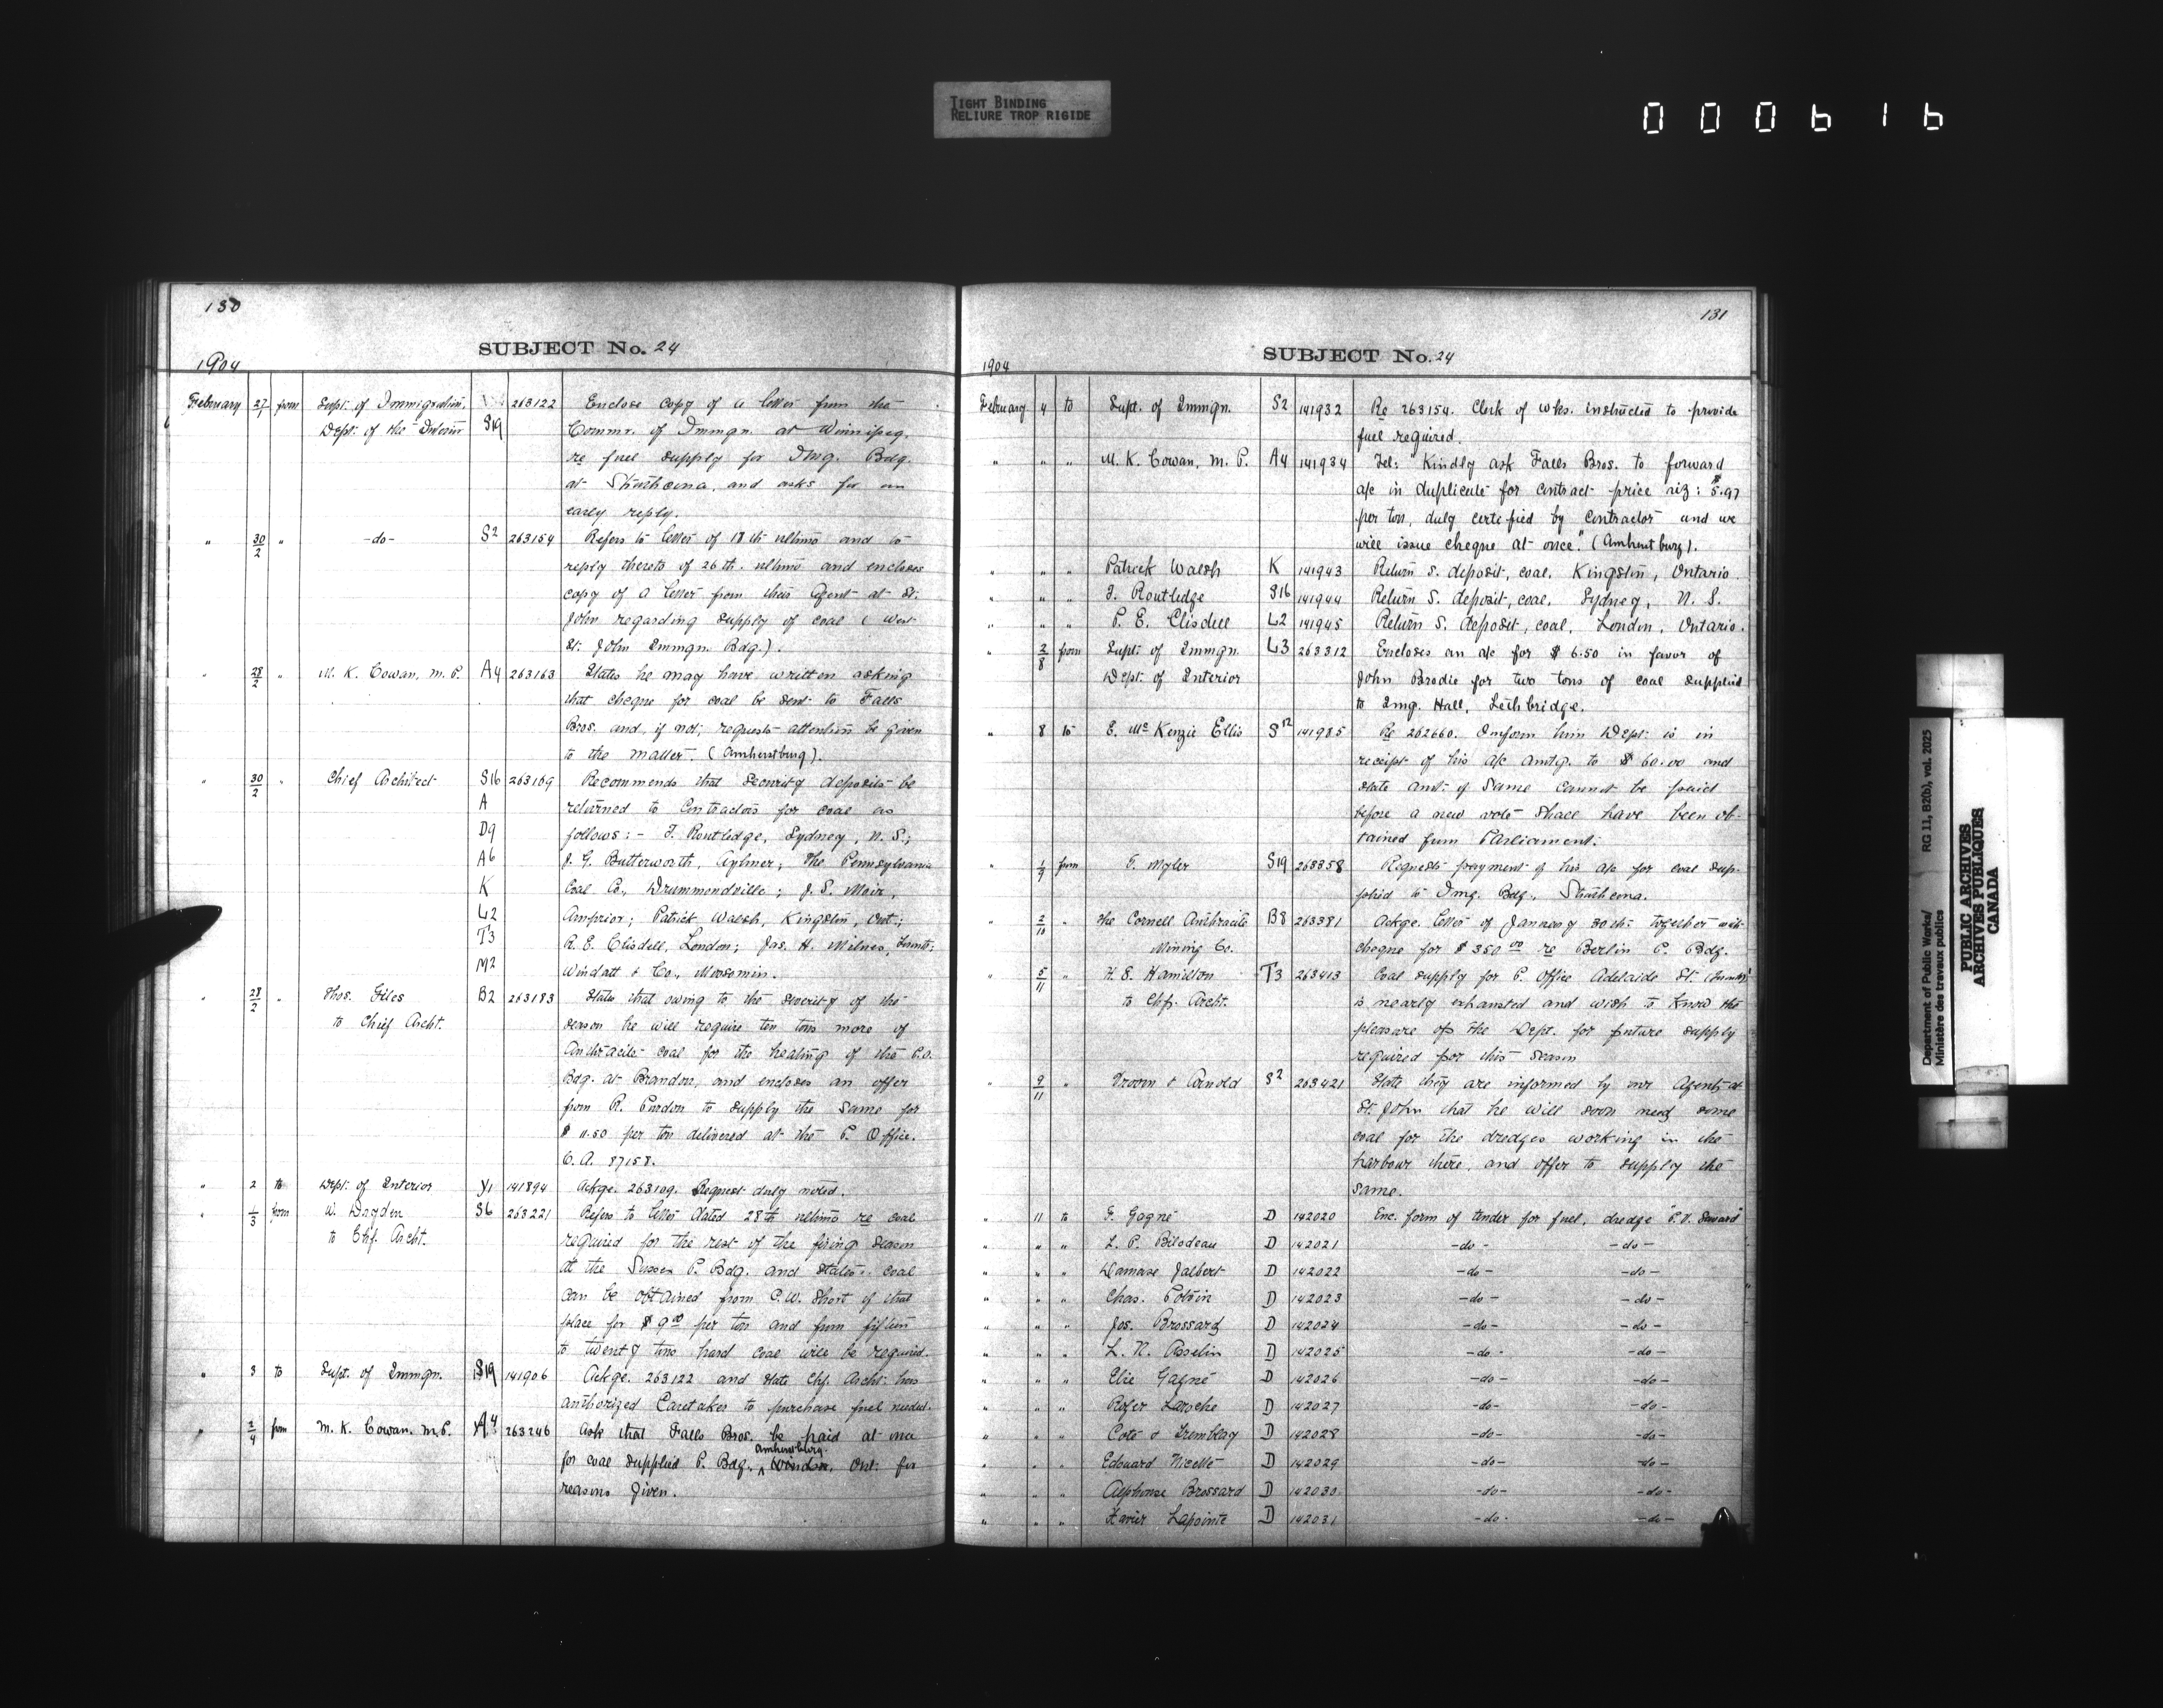 TIGHT BINDING
RELIURE TROP RIGIDE
000616
130
SUBJECT No. 24
1904
February 27/1 from Supt. of Immigration, 263122 Enclose copy of a letter from the
Dept. of the Interior S19 Commr. of Immgn. at Winnipeg,
re fuel supply for Img. Bdg.
at Strathcona, and asks for an
early reply.
" 30/2 " -do- S2 263154 Refers to letter of 18th ultimo and to
reply thereto of 26th. ultimo and encloses
copy of a letter from their Agent at St.
John regarding supply of coal (West
St. John Immgn. Bdg.).
" 28/2 " M. K. Cowan, M. P. A4 263163 States he may have written asking
that cheque for coal be sent to Falls
Bros. and, if not, requests attention be given
to the matter. (Amherstburg).
" 30/2 " Chief Architect S16 263169 Recommends that security deposits be
A returned to Contractors for coal as
D9 follows:- T. Routledge, Sydney, N. S.;
A6 J. G. Butterworth, Aylmer; The Pennsylvania
K Coal Co., Drummondville; J. S. Moir,
L2 Arnprior; Patrick Walsh, Kingston, Ont.;
T3 R. E. Clisdell, London; Jas. H. Milnes, Toronto;
M2 Windatt & Co., Moosomin.
" 28/2 " Thos. Giles B2 263183 States that owing to the severity of the
to Chief Archt. season he will require ten tons more of
Anthracite coal for the heating of the P.O.
Bdg. at Brandon, and encloses an offer
from R. Purdon to supply the same for
$ 11.50 per ton delivered at the P. Office.
C. A. 87158.
" 2 to Dept. of Interior Y1 141894 Ackge. 263109. Request duly noted.
" 1/3 from W. Hayden S6 263221 Refers to letter dated 28th ultimo re coal
to Chf. Archt. required for the rest of the firing season
at the Sussex P. Bdg. and states coal
can be obtained from C. W. Short of that
place for $ 9.00 per ton and from fifteen
to twenty tons hard coal will be required.
" 3 to Supt. of Immgn. S19 141906 Ackge. 263122 and state Chf. Archt. has
authorized Caretaker to purchase fuel needed.
" 2/4 from M. K. Cowan. M.P. A4 263246 Ask that Falls Bros. be paid at once
Amherstburg
for coal supplied P. Bdg. Windsor, Ont. for
reasons given.
131
SUBJECT No. 24
1904
February 4 to Supt. of Immgn. S2 141932 Re 263154. Clerk of wks. instructed to provide
fuel required.
" " " M. K. Cowan, M. P. A4 141934 Tel: "Kindly ask Falls Bros. to forward
a/c in duplicate for contract price viz: $5.97
per ton, duly certified by Contractor and we
will issue cheque at once." (Amherstburg).
" " " Patrick Walsh K 141943 Return S. deposit, coal, Kingston, Ontario.
" " " T. Routledge S16 141944 Return S. deposit, coal, Sydney, N. S.
" " " P. E. Clisdell L2 141945 Return S. deposit, coal, London, Ontario.
" 2/8 from Supt. of Immgn. L3 263312 Encloses an a/c for $ 6.50 in favor of
Dept. of Interior John Brodie for two tons of coal supplied
to Img. Hall, Lethbridge.
" 8 to E. McKenzie Ellis S12 141985 Re 262660. Inform him Dept. is in
receipt of his a/c amtg. to $ 60.00 and
state amt. of same cannot be paid
before a new vote shall have been ob-
tained from Parliament.
" 1/9 from T. Myler S19 263358 Requests payment of his a/c for coal sup-
plied to Img. Bdg., Strathcona.
" 2/10 " The Cornell Anthracite B8 263381 Ackge. letter of January 30th. together with
Mining Co. cheque for $ 350.00 re Berlin P. Bdg.
" 5/11 " H. E. Hamilton T3 263413 Coal supply for P. Office Adelaide St. (Toronto)
to Chf. Archt. is nearly exhausted and wish to know the
pleasure of the Dept. for future supply
required for this season
" 9/11 " Troom & Arnold S2 263421 State they are informed by our Agents at
St. John that he will soon need some
coal for the dredges working in the
harbour there, and offer to supply the
same.
" 11 to F. Gagné D 142020 Enc. form of tender for fuel, dredge
" " " L. P. Bilodeau D 142021 -do- -do-
" " " Damase Jalbert D 142022 -do- -do-
" " " Chas. Potvin D 142023 -do- -do-
" " " Jos. Brossard D 142024 -do- -do-
" " " L. N. Asselin D 142025 -do- -do-
" " " Elie Gagné D 142026 -do- -do-
" " " Roger Laroche D 142027 -do- -do-
" " " Coté & Tremblay D 142028 -do- -do-
" " " Edouard Nicolle D 142029 -do- -do-
" " " Alphonse Brossard D 142030 -do- -do-
" " " Xavier Lapointe D 142031 -do- -do-
Department of Public Works/ RG 11, B2(b), vol. 2025
Ministère des travaux publics
PUBLIC ARCHIVES
ARCHIVES PUBLIQUES
CANADA